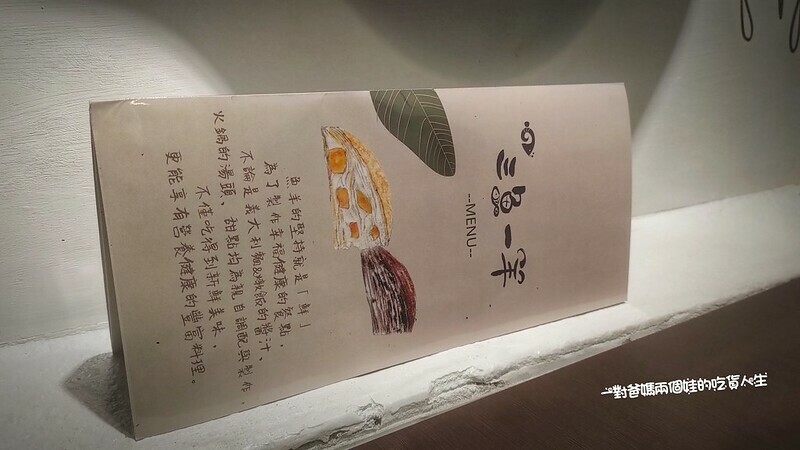 三魚一羊
--MENU--
魚羊的堅持就是「鮮」
為了製作幸福健康的餐點,
不論是義大利麵&燉飯的醬汁、
火鍋的湯頭、甜點均為親自調配與製作,
不僅吃得到新鮮美味,
更能享有營養健康的豐富料理。
一對爸媽兩個娃的吃貨人生